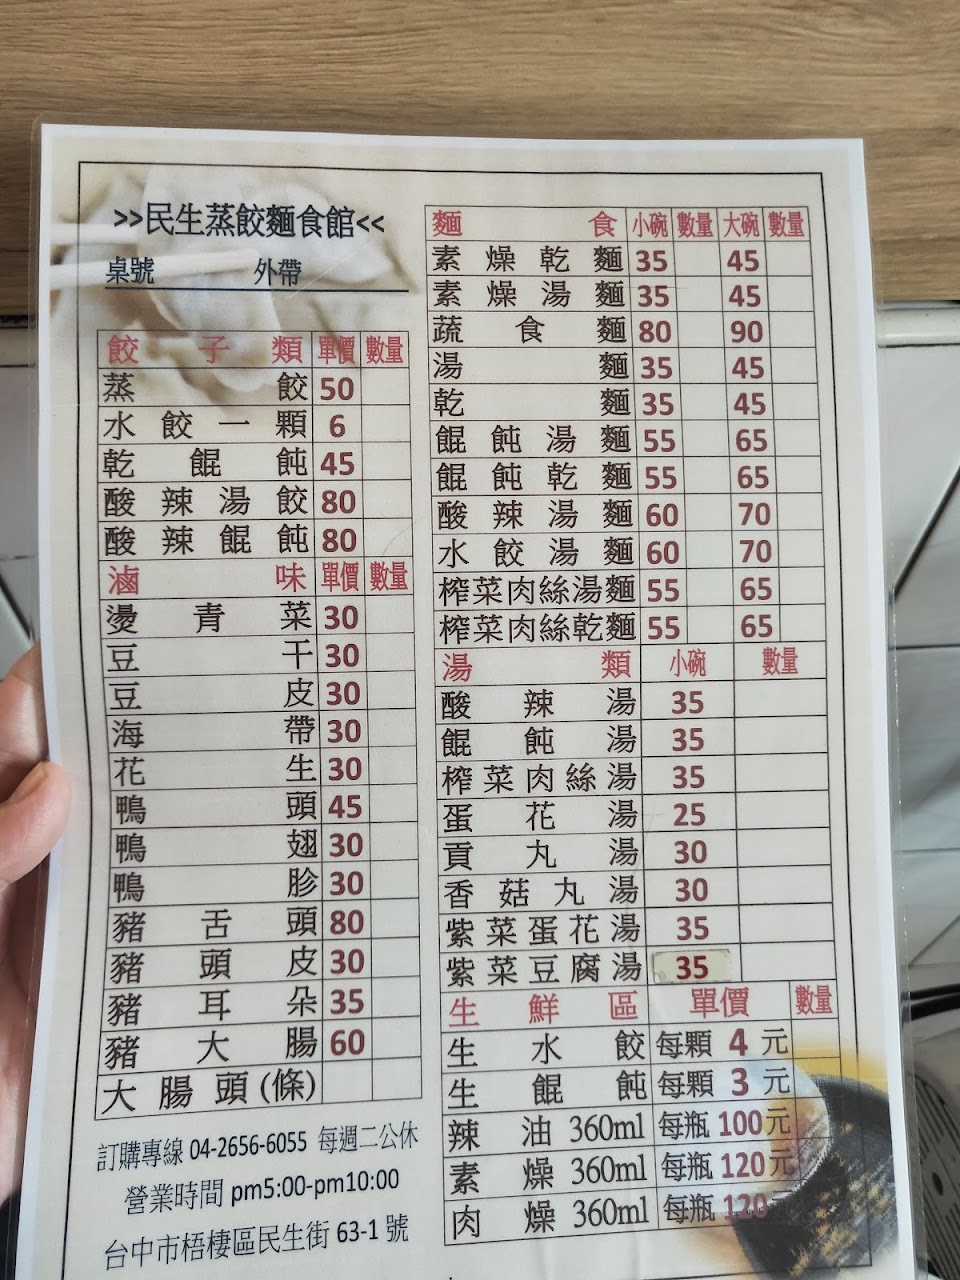 >>民生蒸餃麵食館<<
桌號 外帶
餃子類 單價 數量
蒸餃 50
水餃一顆 6
乾餛飩 45
酸辣湯餃 80
酸辣餛飩 80
滷味 單價 數量
燙青菜 30
豆干 30
豆皮 30
海帶 30
花生 30
鴨頭 45
鴨翅 30
鴨胗 30
豬舌頭 80
豬頭皮 30
豬耳朵 35
豬大腸 60
大腸頭(條)
訂購專線 04-2656-6055 每週二公休
營業時間 pm5:00-pm10:00
台中市梧棲區民生街 63-1 號
麵食 小碗 數量 大碗 數量
素燥乾麵 35 45
素燥湯麵 35 45
蔬食麵 80 90
湯麵 35 45
乾麵 35 45
餛飩湯麵 55 65
餛飩乾麵 55 65
酸辣湯麵 60 70
水餃湯麵 60 70
榨菜肉絲湯麵 55 65
榨菜肉絲乾麵 55 65
湯類 小碗 數量
酸辣湯 35
餛飩湯 35
榨菜肉絲湯 35
蛋花湯 25
貢丸湯 30
香菇丸湯 30
紫菜蛋花湯 35
紫菜豆腐湯 35
生鮮區 單價 數量
生水餃 每顆 4 元
生餛飩 每顆 3 元
辣油 360ml 每瓶 100元
素燥 360ml 每瓶 120元
肉燥 360ml 每瓶 120元